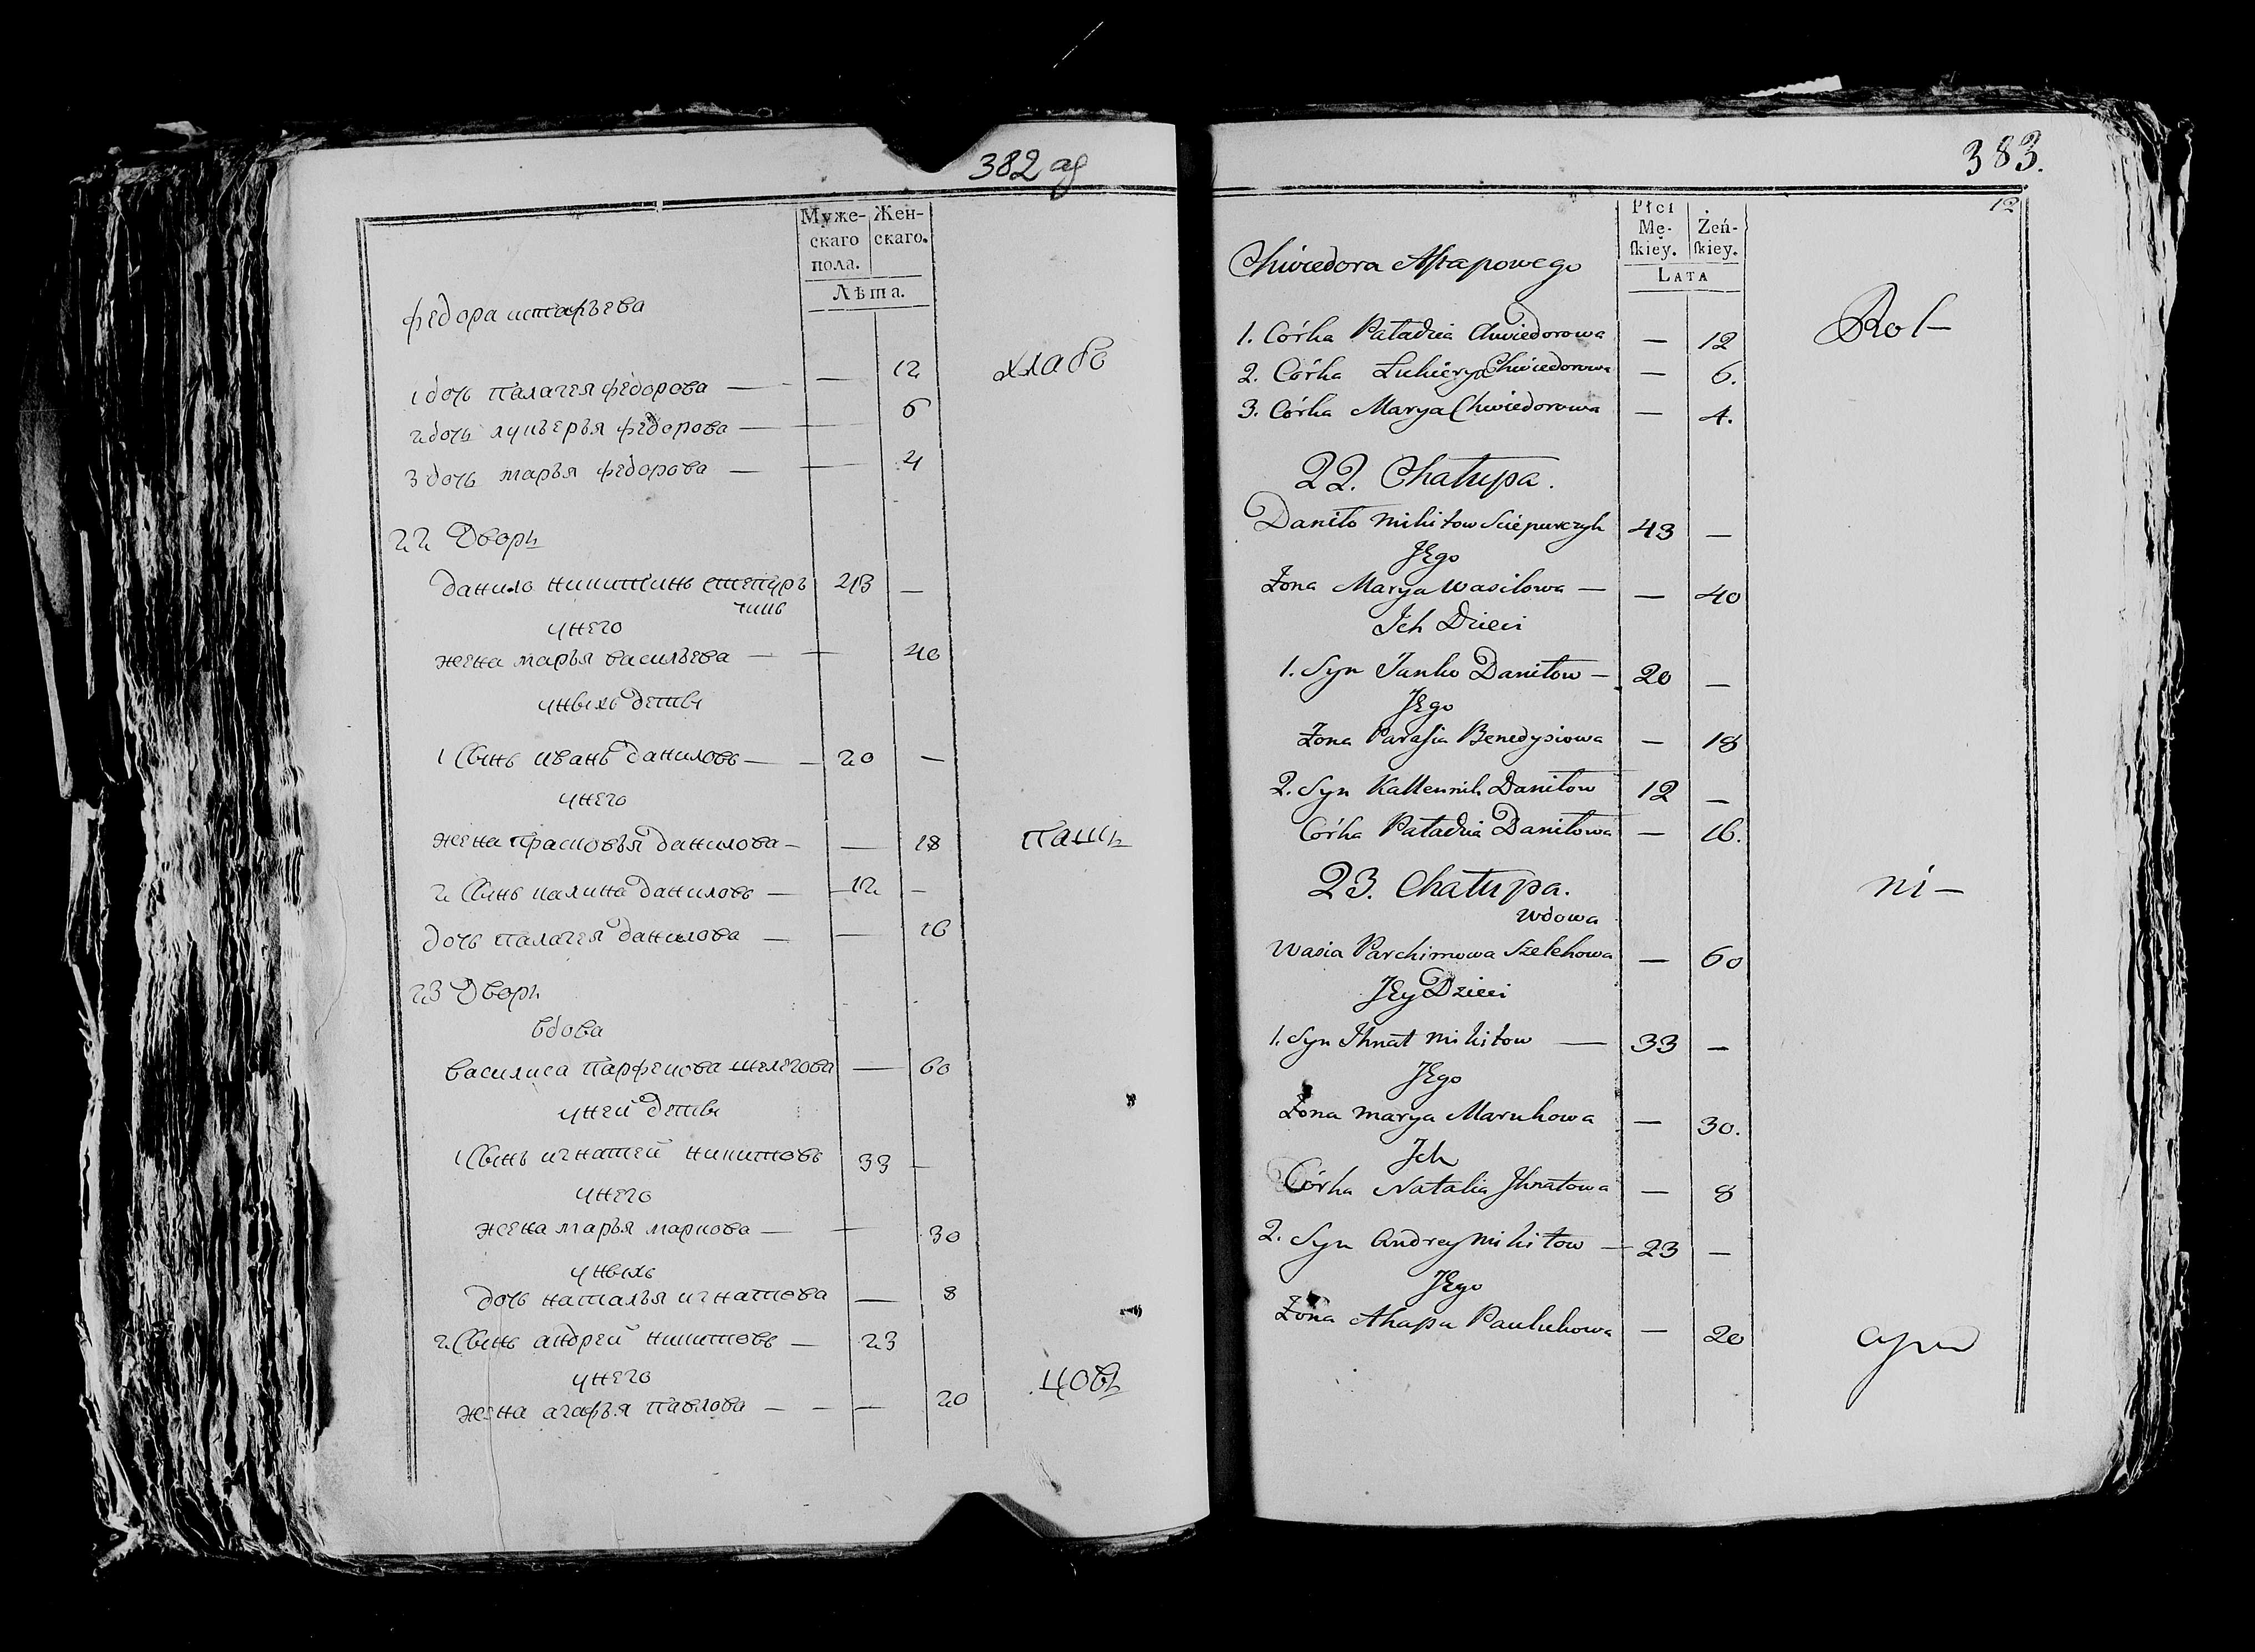 382 об
Муже- Жен-
скаго скаго.
пола.
Лѣта.
Федора истафьева
1 дочь палагея федорова — — 12
хлаб
2 дочь лукерья федорова — — 6
3 дочь марья федорова — — 4
22 Дворъ
данило никитинъ степур 43 —
чикъ
у него
жена марья васильева — — 40
у ныхъ дети
1 сынъ иванъ даниловъ — 20 —
у него
жена прасковья данилова — — 18
пашъ
2 сынъ калина даниловъ — 12 —
дочь палагея данилова — — 16
23 Дворъ
вдова
василиса парфенова шелегова — 60
у ней дети
1 сынъ игнатей никитовъ 33 —
у него
жена марья маркова — — 30
у ныхъ
дочь наталья игнатова — 8
2 сынъ андрей никитовъ — 23
у него
жена агафья павлова — — — 20
цовъ
383.
12
Płci
Mę- Żeń-
skiey. skiey.
LATA
Chwiedora Astapowego
1. Córka Paładzia Chwiedorowa — 12
Rol-
2. Córka Łukierya Chwiedorowa — 6.
3. Córka Marya Chwiedorowa — 4.
22. Chałupa.
Daniło Mikitow Sciepurczyk 43 —
JEgo
Żona Marya Wasilowa — — 40
Ich Dzieci
1. Syn Janko Daniłow — 20 —
JEgo
Żona Parasia Benedysiowa — 18
2. Syn Kallennik Daniłow 12 —
Córka Paładzia Daniłowa — 16.
23. Chałupa.
ni-
Wdowa
Wasia Parchimowa Szelehowa — 60
JEy Dzieci
1. Syn Ihnat Mikitow — 33 —
JEgo
Żona Marya Markowa — 30.
Ich
Córka Natalia Ihnatowa — 8
2. Syn Andrey Mikitow — 23 —
JEgo
Żona Ahapa Pawlukowa — 20